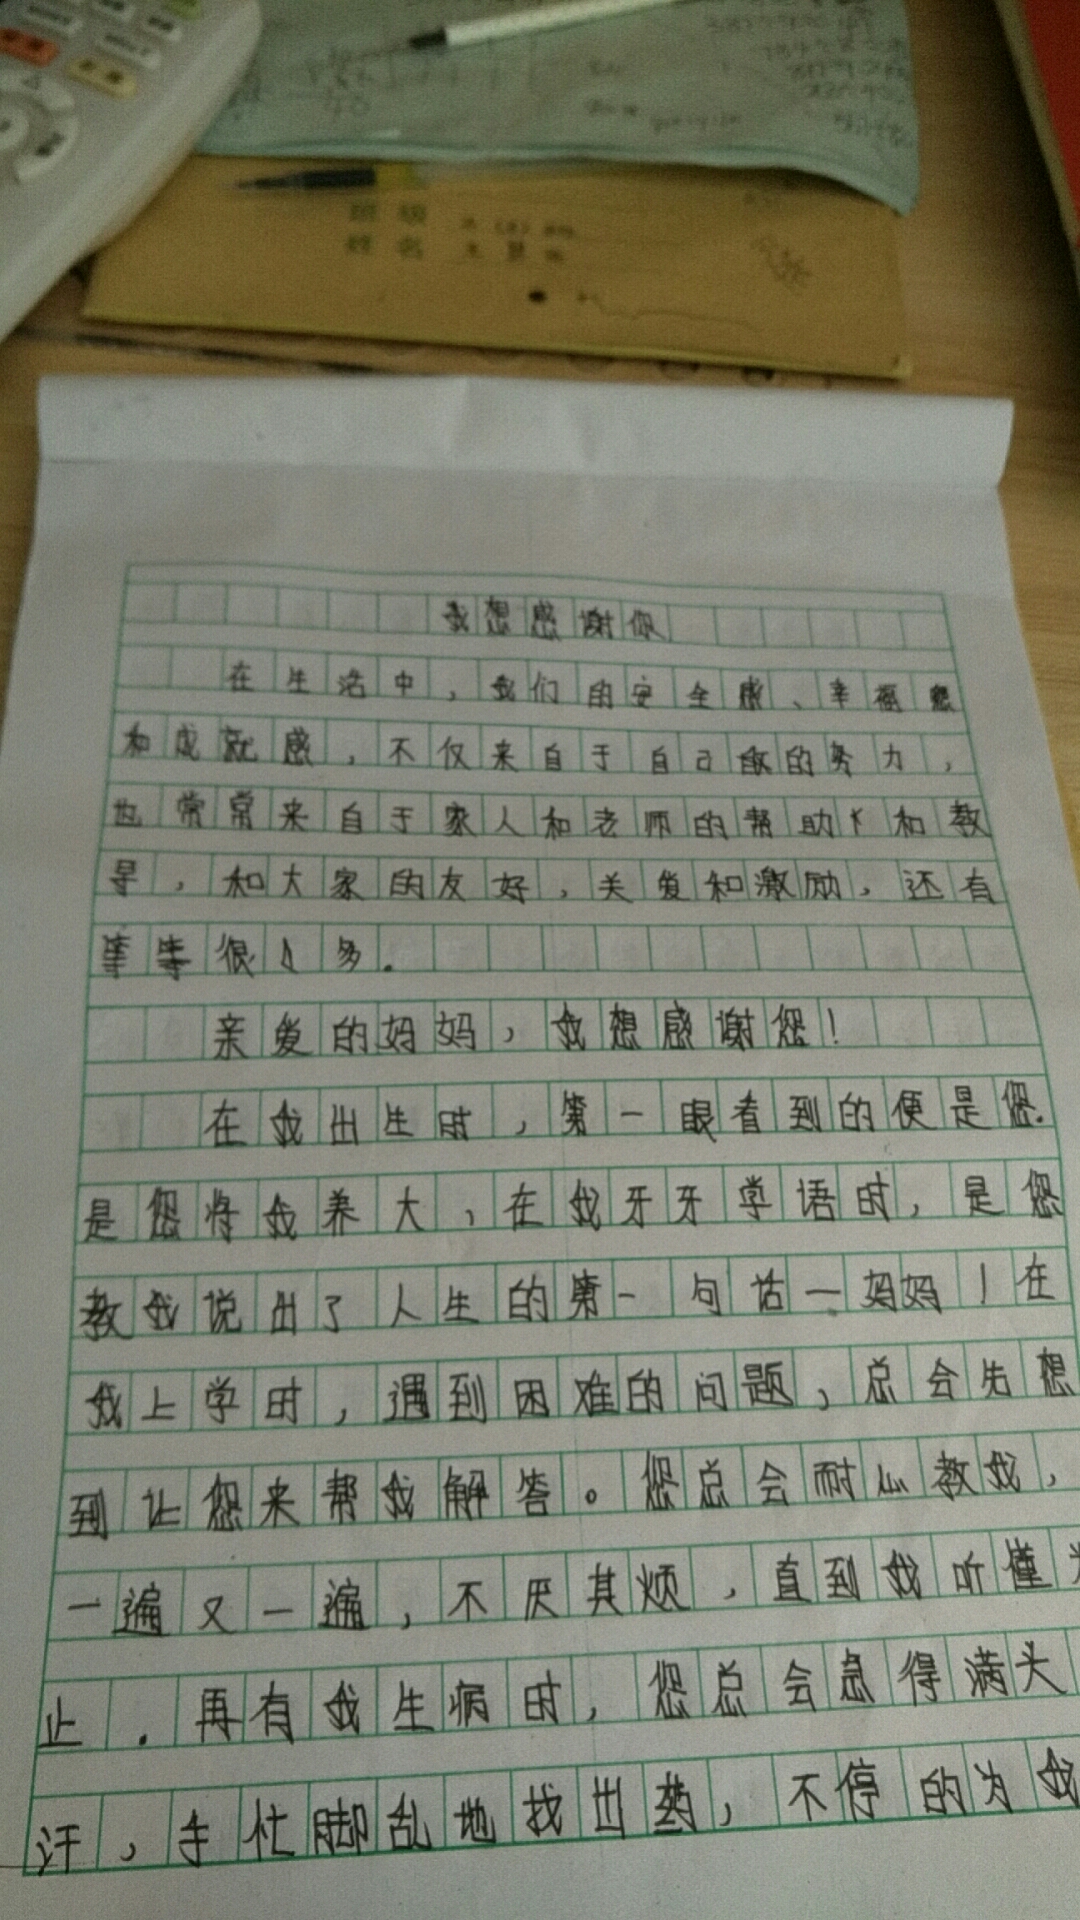 班级
姓名
我想感谢您
在生活中，我们的安全感、幸福感
和成就感，不仅来自于自己做的努力，
也常常来自于家人和老师的帮助和教
导，和大家的友好，关爱和激励，还有
等等很多.
亲爱的妈妈，我想感谢您！
在我出生时，第一眼看到的便是您.
是您将我养大，在我牙牙学语时，是您
教我说出了人生的第一句话一妈妈！在
我上学时，遇到困难的问题，总会先想
到让您来帮我解答。您总会耐心教我，
一遍又一遍，不厌其烦，直到我听懂为
止．再有我生病时，您总会急得满头
汗，手忙脚乱地找出药，不停的为我